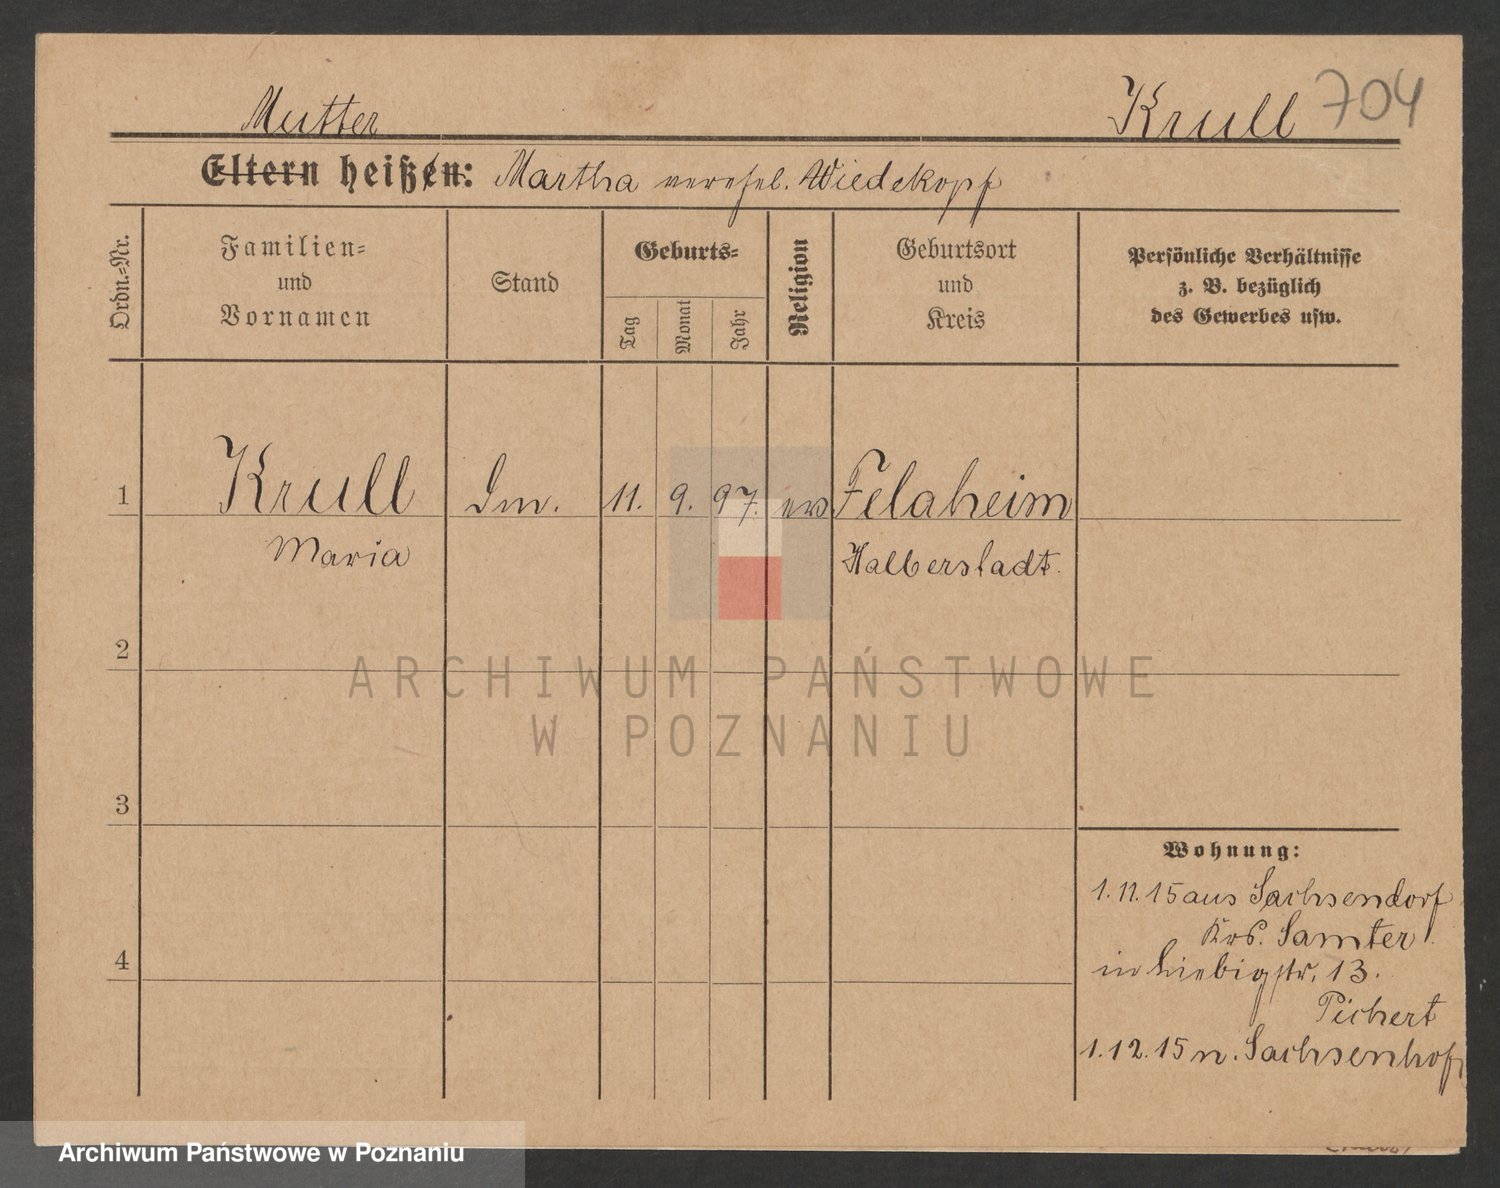 Mutter
Krull 704
Eltern heißen: Martha verehel. Wiedekopf
Ordn.=Nr.
Familien=
und
Vornamen
Stand
Geburts=
Tag
Monat
Jahr
Religion
Geburtsort
und
Kreis
Persönliche Verhältnisse
z. B. bezüglich
des Gewerbes usw.
1 Krull 11. 9. 97. ev Felaheim
Maria Halberstadt.
2
3
4
Wohnung:
1.11.15 aus Sachsendorf
Krs. Samter
in Liebigstr. 13.
Pichert
1.12.15 n. Sachsenhof
ARCHIWUM PAŃSTWOWE
W POZNANIU
Archiwum Państwowe w Poznaniu